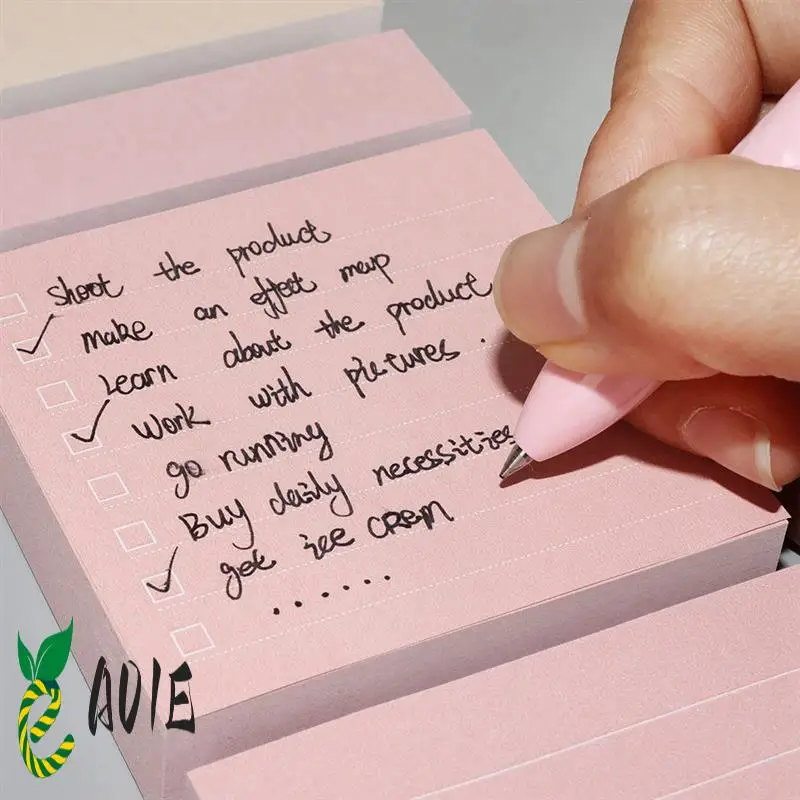 Shoot the product
make an effect map
Learn about the product
Work with pictures.
go running
Buy daily necessities
get ice crem
......
AVIE